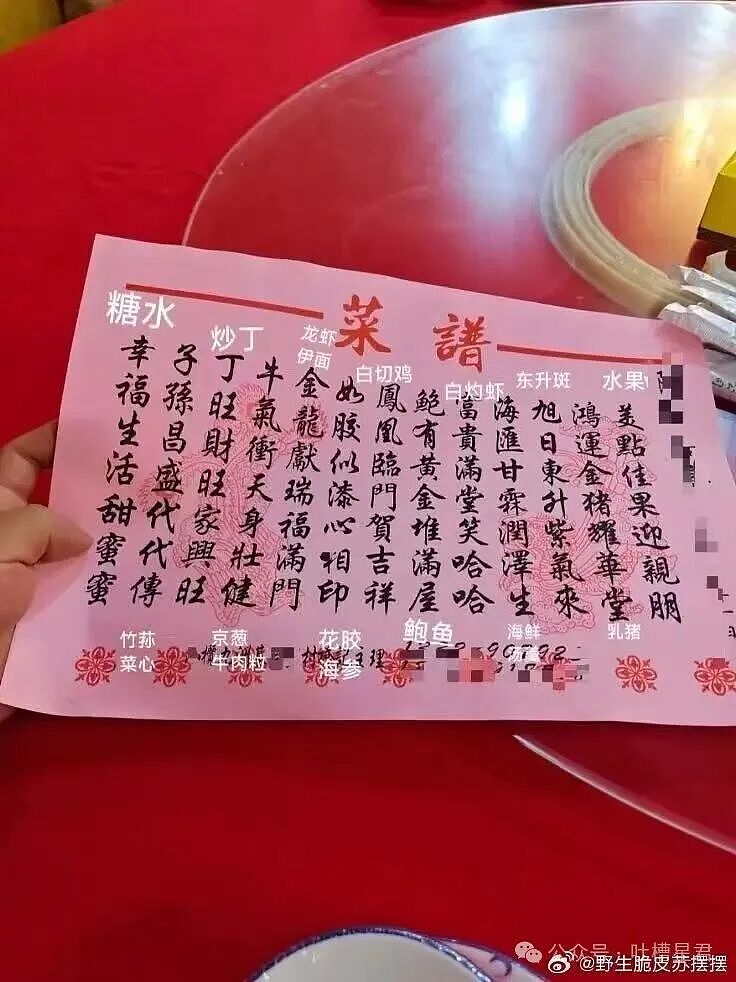 菜譜
糖水
炒丁
龙虾
伊面
白切鸡
白灼虾
东升斑
水果
美點佳果迎親朋
鴻運金猪耀華堂
旭日東升紫氣來
海匯甘霖潤澤生
富貴滿堂笑哈哈
鲍有黄金堆滿屋
鳳凰臨門賀吉祥
如膠似漆心相印
金龍獻瑞福滿門
牛氣衝天身壯健
丁旺財旺家興旺
子孫昌盛代代傳
幸福生活甜蜜蜜
竹荪
菜心
京葱
牛肉粒
花胶
海参
鲍鱼
海鲜
乳猪
公众号·吐槽星君
@野生脆皮苏摆摆